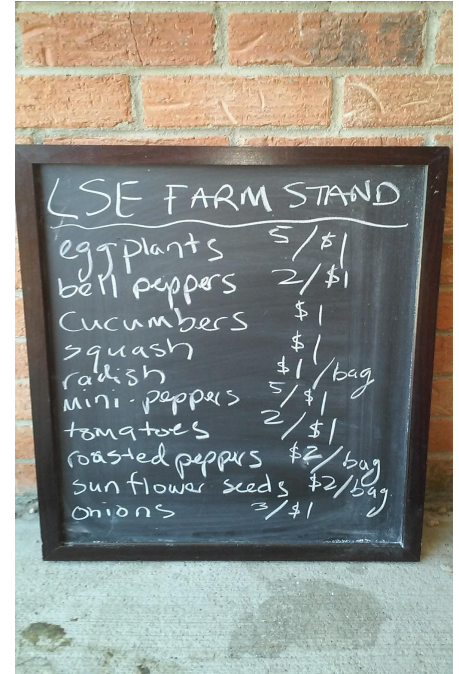 LSE FARM STAND
eggplants 5/$1
bell peppers 2/$1
cucumbers $1
squash $1
radish $1/bag
mini-peppers 5/$1
tomatoes 2/$1
roasted peppers $2/bag
sunflower seeds $2/bag
onions 3/$1